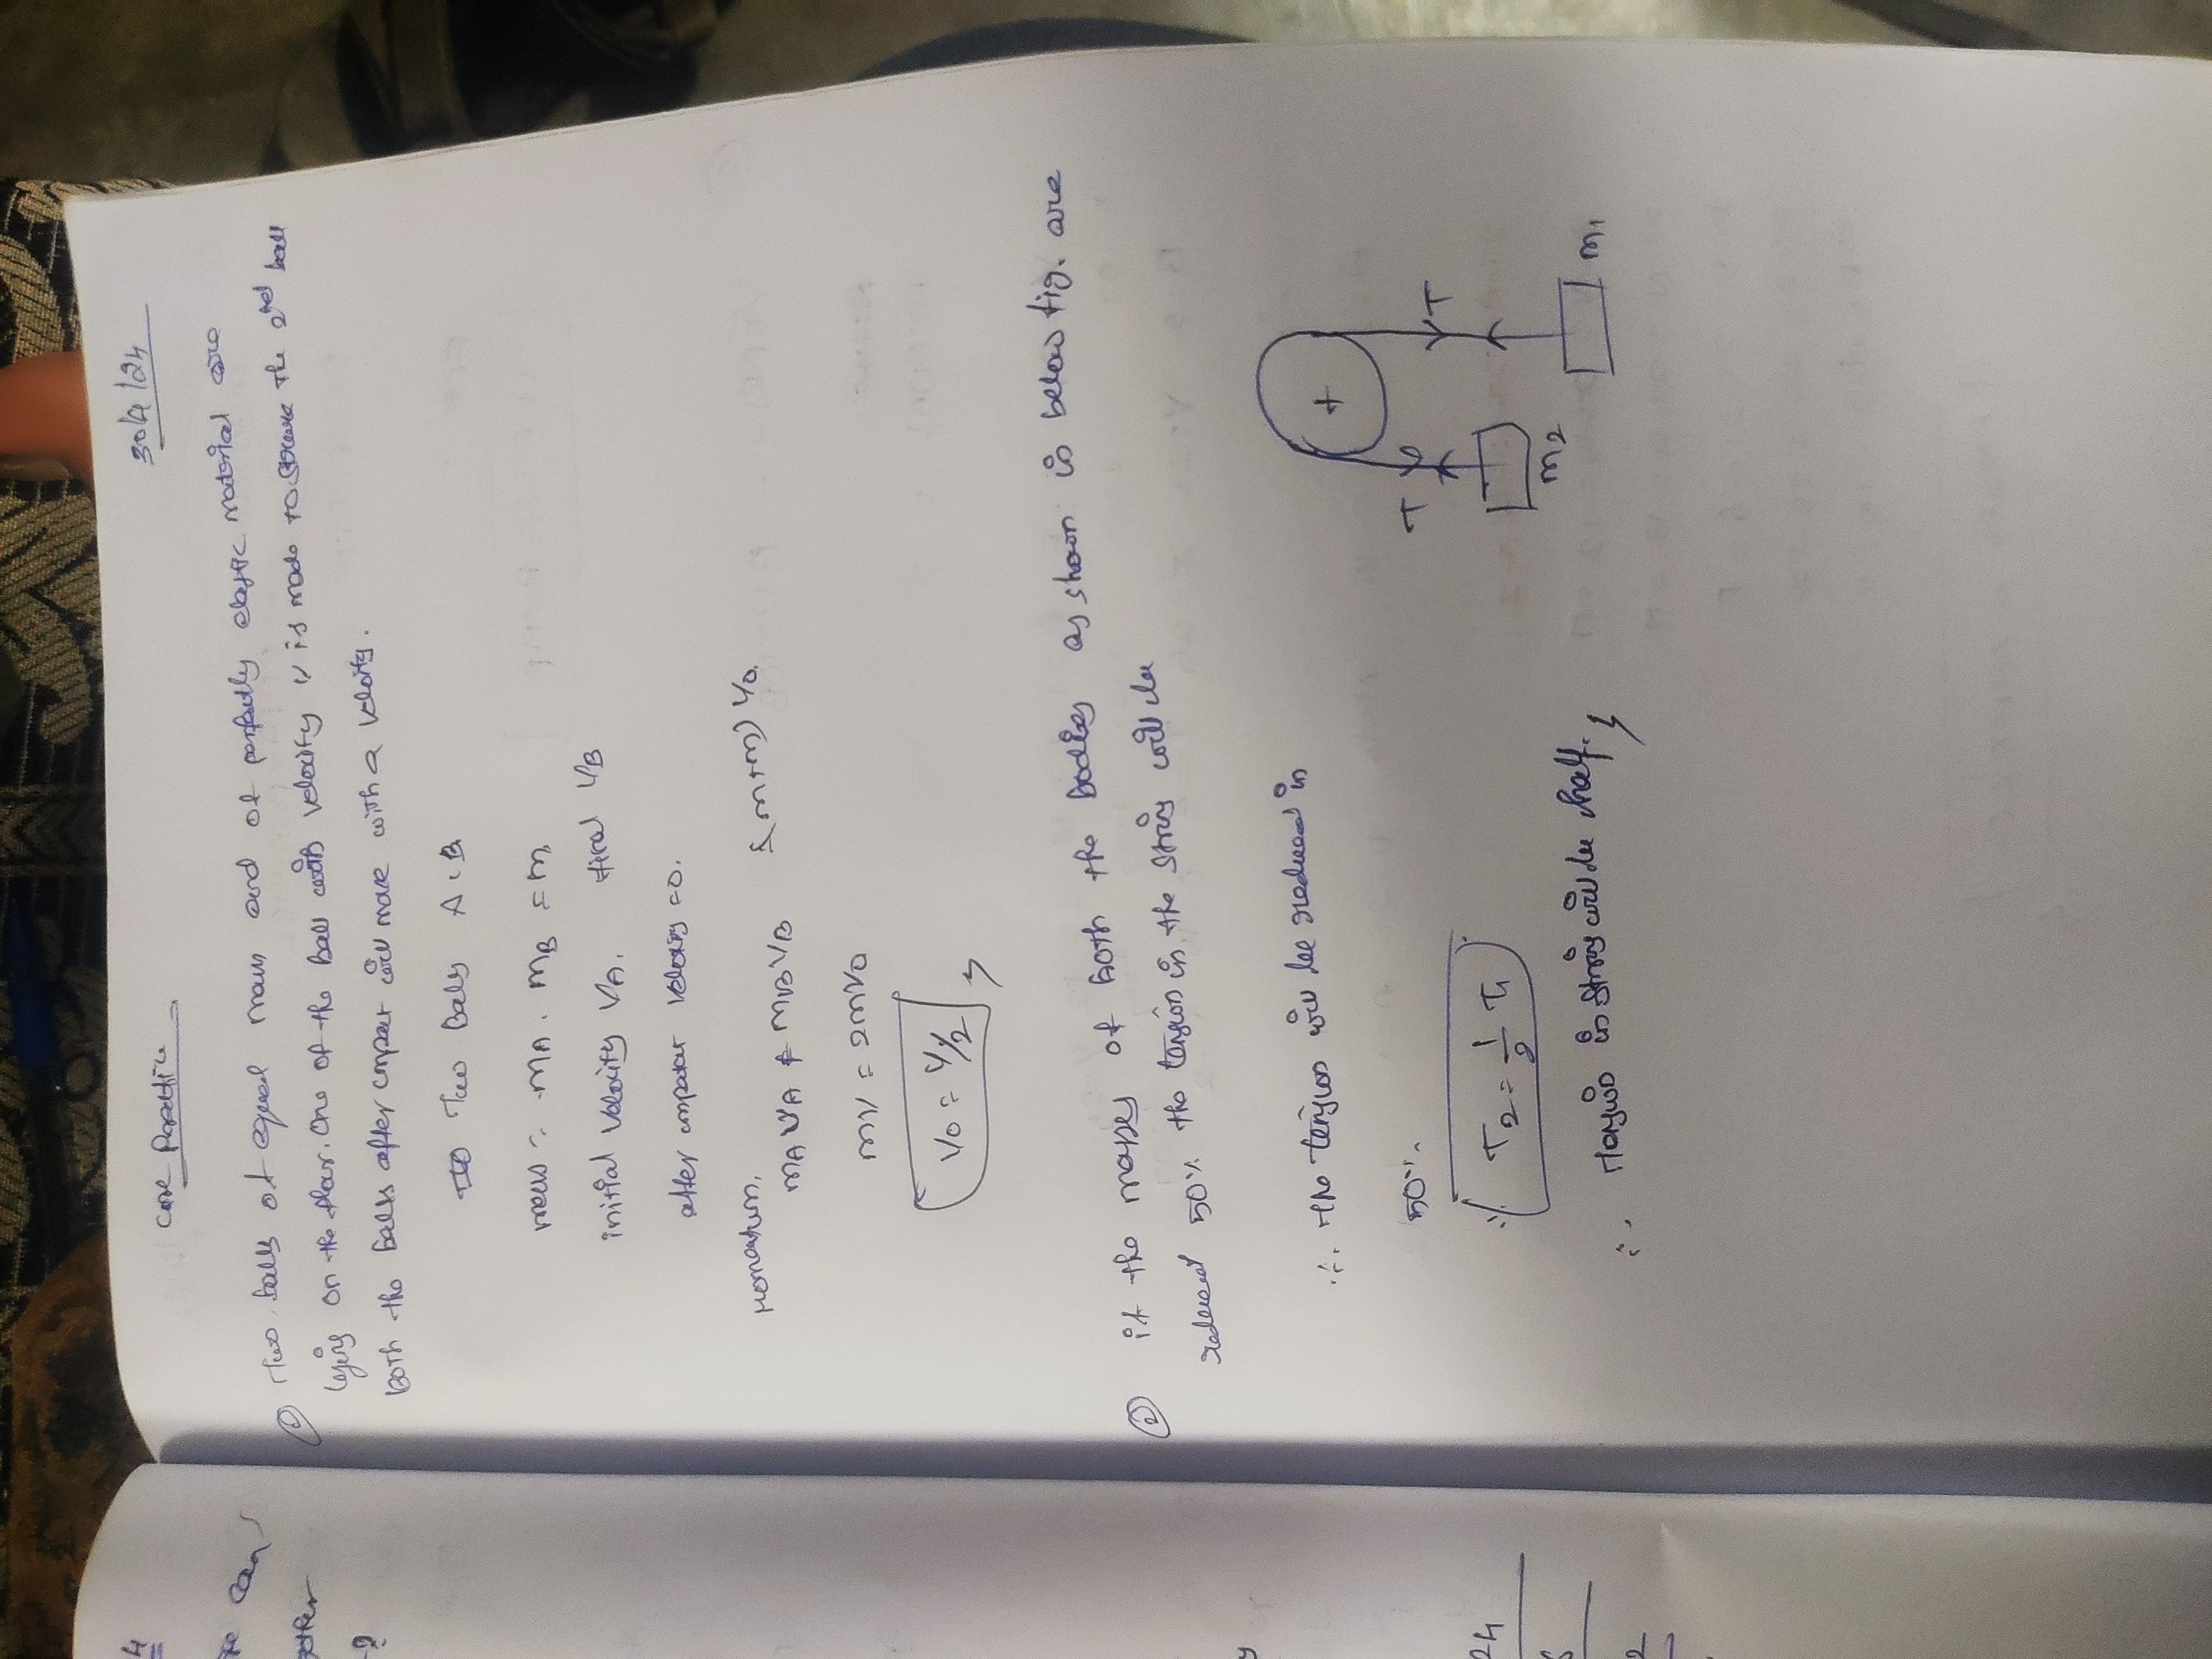 24
Core Practice
30/4/24
① Two balls of equal mass and of perfectly elastic material are
laying on the floor. One of the ball with velocity v is made to the 2nd ball
both the balls after impact will move with a velocity.
Two Balls A, B
mass = mA. mB = m
initial velocity VA. final VB
after impact velocity =0.
momentum,
mAVA + mBVB (m+m) V0.
mV = 2mV0
V0 = V/2
② if the masses of both the bodies as shown in below fig. are
reduced 50% the tension in the string will be
∴ the tension will be reduced in
50%.
T
T
m2
m1
T2 = 1/2 T1
∴ Tension in string will be half.